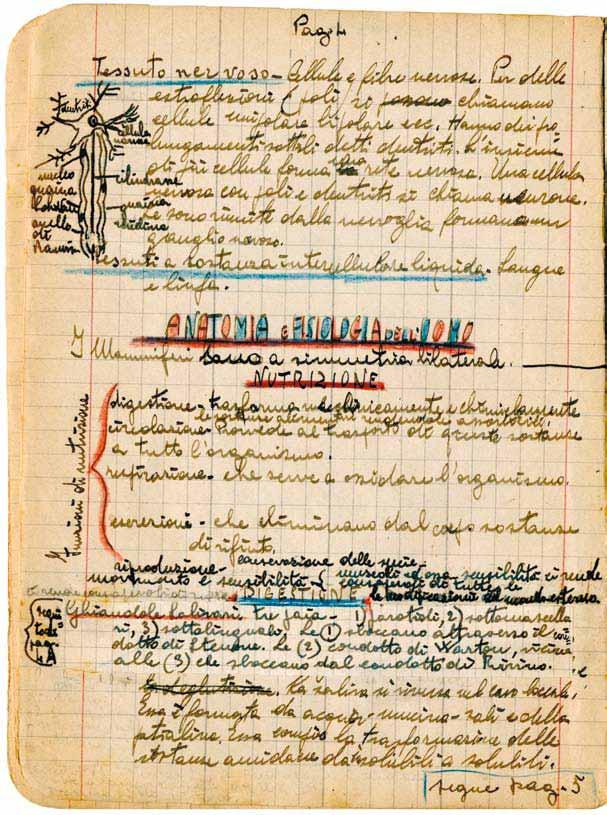 Pag. 4
Tessuto nervoso - Cellule e fibre nervose. Per delle
estroflessioni (poli) si chiamano
cellule unipolare bipolare ecc. Hanno dei pro
lungamenti sottili detti dentriti. L'insieme
di più cellule forma una rete nervosa. Una cellula
nervosa con poli e dentriti si chiama neurone.
Se sono riunite dalla nevroglia formano un
ganglio nervoso.
Dentriti
cellula
nervosa
nucleo
guaina
cilindrasse
guaina
mielina
anello
di
Ranvier
Tessuti a sostanza intercellulare liquida. Sangue
e linfa.
ANATOMIA e FISIOLOGIA dell'UOMO
I Mammiferi sono a simmetria bilaterale.
NUTRIZIONE
Funzioni di nutrizione
digestione - trasforma meccanicamente e chimicamente
le sostanze alimentari rendendole assorbibili.
circolazione - Provvede al trasporto di queste sostanze
a tutto l'organismo.
respirazione - che serve a ossidare l'organismo.
escrezioni - che eliminano dal corpo sostanze
di rifiuto.
riproduzione - conservazione delle specie
movimento e sensibilità - muscoli ed ossa sensibilità ci rende
consapevoli di tutte le
modificazioni del mondo esterno
DIGESTIONE
Ghiandole Salivari tre paia - 1) parotidi, 2) sottomascella
ri, 3) sottolinguali. Le (1) sboccano attraverso il con
dotto di Stenone. Le (2) condotto di Warton, vicina
alle (3) che sboccano dal condotto di Rivino.
La deglutizione. La saliva si riversa nel cavo boccale,
Essa è formata da acqua - mucina - sali e della
ptialina. Essa compie la trasformazione delle
sostanze amidacee da insolubili a solubili.
segue pag. 5